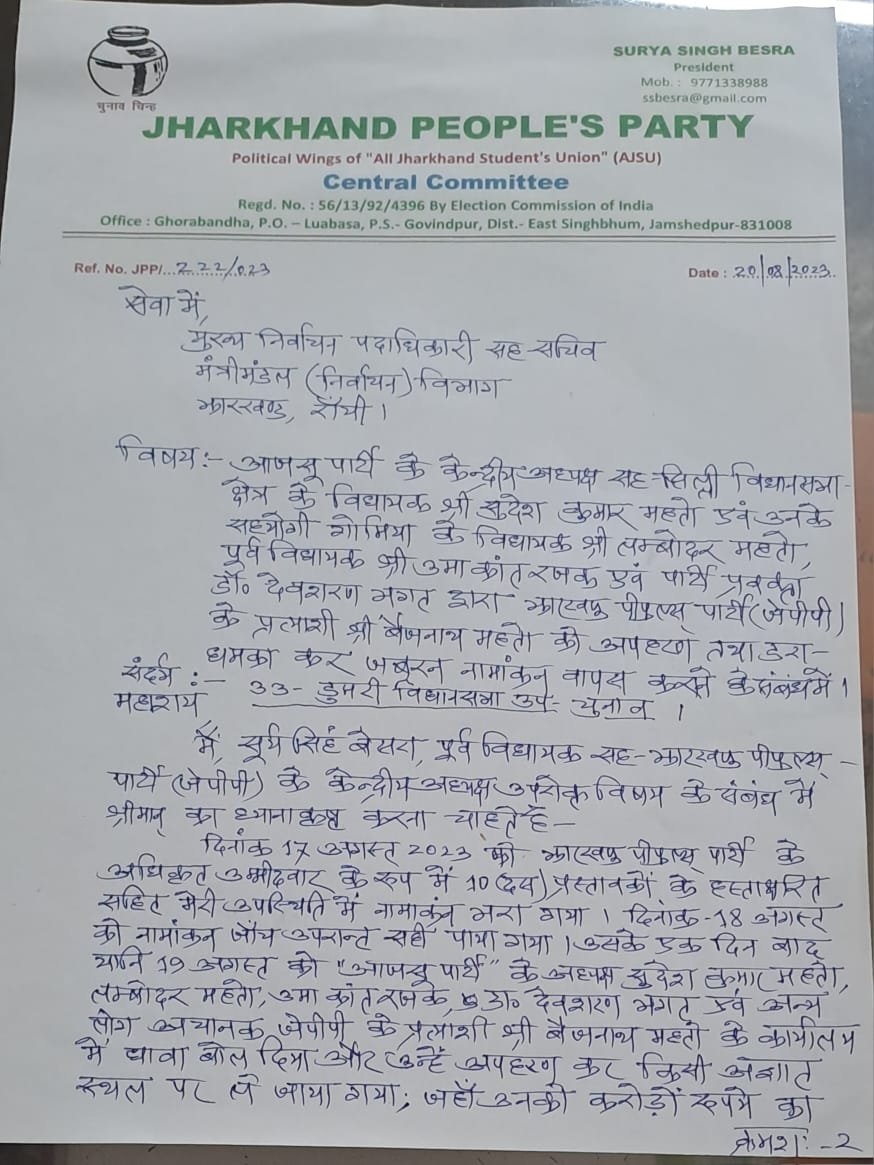 चुनाव चिन्ह
SURYA SINGH BESRA
President
Mob. : 9771338988
ssbesra@gmail.com
JHARKHAND PEOPLE'S PARTY
Political Wings of "All Jharkhand Student's Union" (AJSU)
Central Committee
Regd. No. : 56/13/92/4396 By Election Commission of India
Office : Ghorabandha, P.O. – Luabasa, P.S.- Govindpur, Dist.- East Singhbhum, Jamshedpur-831008
Ref. No. JPP/...222/023
Date : 20/08/2023.
सेवा में,
मुख्य निर्वाचन पदाधिकारी सह-सचिव
मंत्रीमंडल (निर्वाचन) विभाग
झारखण्ड, राँची।
विषय:- आजसू पार्टी के केन्द्रीय अध्यक्ष सह-सिल्ली विधानसभा-
क्षेत्र के विधायक श्री सुदेश कुमार महतो एवं उनके
सहयोगी गोमिया के विधायक श्री लम्बोदर महतो,
पूर्व विधायक श्री उमाकांत रजक एवं पार्टी प्रवक्ता
डॉ० देवशरण भगत द्वारा झारखण्ड पीपुल्स पार्टी (जेपीपी)
के प्रत्याशी श्री बैजनाथ महतो को अपहरण तथा डरा-
धमका कर जबरन नामांकन वापस करने के संबंध में।
संदर्भ :- 33- डुमरी विधानसभा उप- चुनाव।
महाशय
मैं, सूर्य सिंह बेसरा, पूर्व विधायक सह-झारखण्ड पीपुल्स-
पार्टी (जेपीपी) के केन्द्रीय अध्यक्ष उपरोक्त विषय के संबंध में
श्रीमान् का ध्यानाकृष्ट करना चाहते हैं-
दिनांक 17 अगस्त 2023 को झारखण्ड पीपुल्स पार्टी के
अधिकृत उम्मीदवार के रूप में 10 (दस) प्रस्तावकों के हस्ताक्षरित
सहित मेरी उपस्थिति में नामांकन भरा गया। दिनांक-18 अगस्त
को नामांकन जाँच उपरान्त सही पाया गया। उसके एक दिन बाद
यानि 19 अगस्त को "आजसू पार्टी" के अध्यक्ष सुदेश कुमार महतो,
लम्बोदर महतो, उमा कांत रजक, डॉ० देवशरण भगत एवं अन्य
लोग अचानक जेपीपी के प्रत्याशी श्री बैजनाथ महतो के कार्यालय
में धावा बोल दिया और उन्हें अपहरण कर किसी अज्ञात
स्थल पर ले जाया गया; जहाँ उनको करोड़ों रुपये का
क्रमशः -2